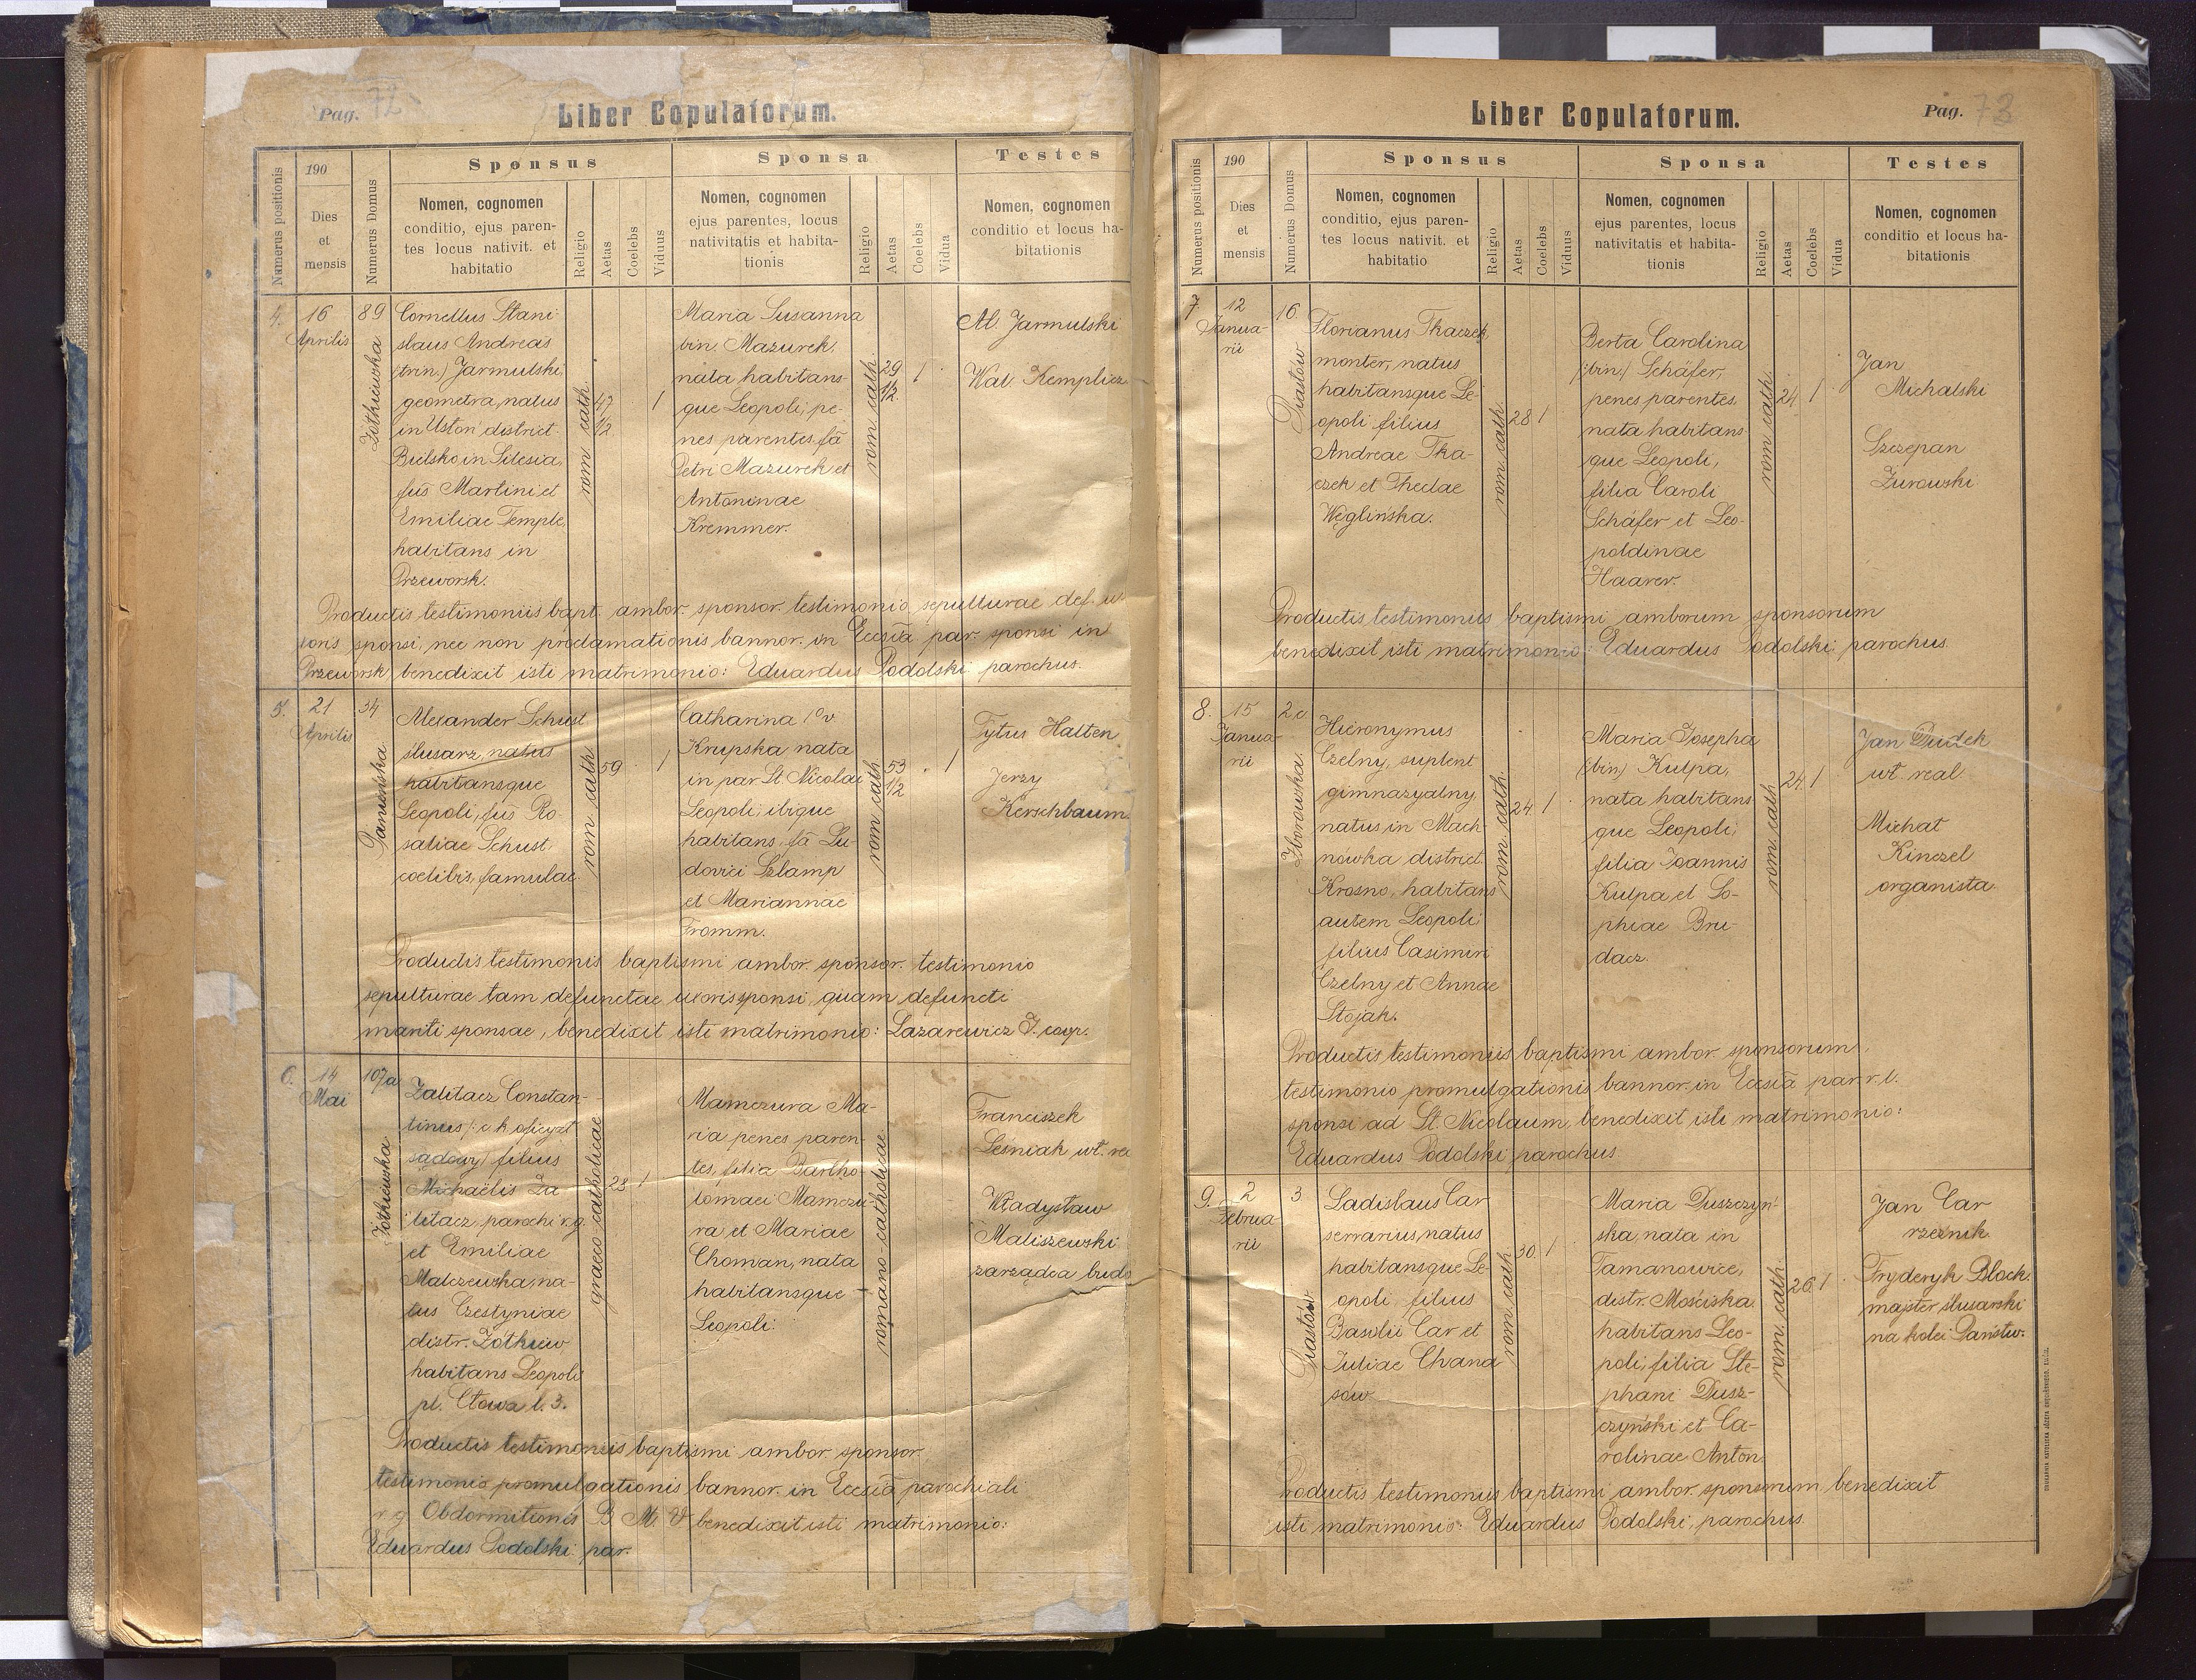 Pag. 72
Liber Copulatorum.
Numerus positionis
190
Dies
et
mensis
Numerus Domus
Sponsus
Nomen, cognomen
conditio, ejus paren-
tes locus nativit. et
habitatio
Religio
Aetas
Coelebs
Viduus
Sponsa
Nomen, cognomen
ejus parentes, locus
nativitatis et habita-
tionis
Religio
Aetas
Coelebs
Vidua
Testes
Nomen, cognomen
conditio et locus ha-
bitationis
4.
16
Aprilis
89
Żółkiewska
Cornelius Stani
slaus Andreas
(trin.) Jarmulski,
geometra, natus
in Ustoń district.
Bielsko in Silesia,
fus Martini et
Emiliae Temple,
habitans in
Przeworsk.
rom. cath.
47
1/2
1
Maria Susanna
bin. Mazurek,
nata habitans-
que Leopoli, pe-
nes parentes, fa
Petri Mazurek et
Antoninae
Kremmer.
rom. cath.
29
1/2
1
Al. Jarmulski
Wal. Kemplicz
Productis testimoniis bapt. ambor. sponsor. testimonio sepulturae def. u-
xoris sponsi, nec non proclamationis bannor. in Ecclsia par. sponsi in
Przeworsk benedixit isti matrimonio: Eduardus Podolski parochus.
5.
21
Aprilis
34
Panieńska
Alexander Schust
ślusarz, natus
habitansque
Leopoli, fus Ro-
saliae Schust,
coelibis, famulae
rom. cath.
59
1
Catharina 1o v
Krupska nata
in par. St Nicolai
Leopoli, ibique
habitans, fa Lu-
dovici Szlamp
et Mariannae
Fromm.
rom. cath.
53
1/2
1
Tytus Halten
Jerzy
Kerschbaum
Productis testimoniis baptismi ambor. sponsor. testimonio
sepulturae tam defunctae uxoris sponsi, quam defuncti
mariti sponsae, benedixit isti matrimonio: Lazarewicz J. coop.
6.
14
Mai
107a
Żółkiewska
Zalitacz Constan-
tinus (: c. k. oficyał
sądowy) filius
Michaelis Za-
litacz, parochi r. g.
et Emiliae
Malczewska, na-
tus Czestyniae
distr. Żółkiew,
habitans Leopoli
pl. Cłowa l. 3.
graeco catholicae
28
1
Mamczura Ma-
ria penes paren-
tes, filia Bartho-
lomaei Mamczu-
ra et Mariae
Choman, nata
habitansque
Leopoli
romano-catholicae
Franciszek
Leśniak wł. rea
Władysław
Maliszewski
zarządca budo
Productis testimoniis baptismi ambor. sponsor.
testimonio promulgationis bannor. in Ecclsia parochiali
r. g. Obdormitionis B. M. V. benedixit isti matrimonio:
Eduardus Podolski par.
Liber Copulatorum.
Pag. 73
Numerus positionis
190
Dies
et
mensis
Numerus Domus
Sponsus
Nomen, cognomen
conditio, ejus paren-
tes locus nativit. et
habitatio
Religio
Aetas
Coelebs
Viduus
Sponsa
Nomen, cognomen
ejus parentes, locus
nativitatis et habita-
tionis
Religio
Aetas
Coelebs
Vidua
Testes
Nomen, cognomen
conditio et locus ha-
bitationis
7.
12
Janua-
rii
16.
Piastów
Florianus Tkaczek
monter, natus
habitansque Le-
opoli filius
Andreae Tka-
czek et Theclae
Węglińska.
rom. cath.
28
1
Berta Carolina
(:bin.) Schäfer,
penes parentes,
nata habitans-
que Leopoli,
filia Caroli
Schäfer et Leo-
poldinae
Haarer.
rom. cath.
24
1
Jan
Michalski
Szczepan
Żurowski
Productis testimoniis baptismi amborum sponsorum
benedixit isti matrimonio: Eduardus Podolski parochus.
8.
15
Janua-
rii
2c
Zborowska
Hieronymus
Czelny, suplent
gimnazyalny
natus, in Mach-
nówka district.
Krosno, habitans
autem Leopoli,
filius Casimiri
Czelny et Annae
Stojak.
rom. cath.
24
1
Maria Josepha
(bin.) Kulpa,
nata habitans-
que Leopoli,
filia Joannis
Kulpa, et So-
phiae Bru-
dacz.
rom. cath.
24
1
Jan Dudek
wł. real.
Michał
Kinczel
organista
Productis testimoniis baptismi ambor. sponsorum,
testimonio promulgationis bannor. in Ecclsia par. r. l.
sponsi ad St. Nicolaum, benedixit isti matrimonio:
Eduardus Podolski parochus.
9.
2
Februa-
rii
3
Piastów
Ladislaus Car
serrarius, natus
habitansque Le-
opoli filius
Basilii Car et
Juliae Chana
sów
rom. cath.
30
1
Maria Duszczyń-
ska, nata in
Tamanowice,
distr. Mościska
habitans Leo-
poli, filia Ste-
phani Dusz-
czyński et Ca-
rolinae Anton.
rom. cath.
26
1
Jan Car
rzeźnik.
Fryderyk Block.
majster ślusarski
na kolei Państw.
Productis testimoniis baptismi ambor. sponsorum benedixit
isti matrimonio: Eduardus Podolski, parochus.